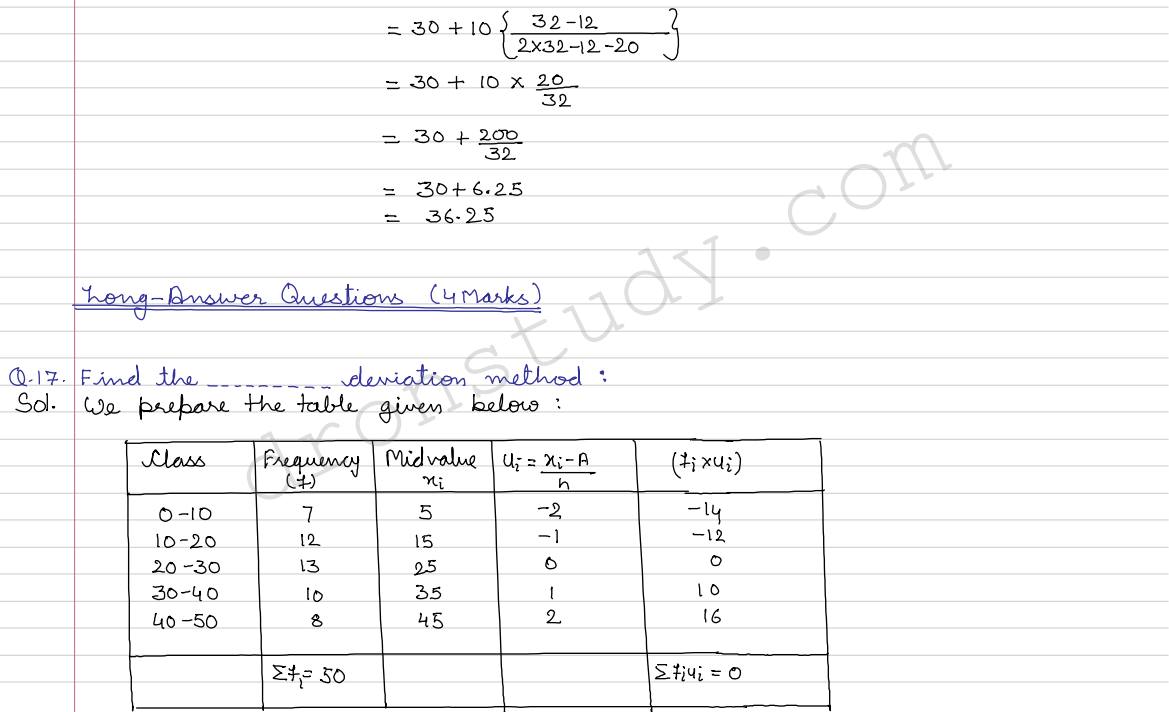 = 30 + 10 { 32-12 / 2×32-12-20 }
= 30 + 10 × 20/32
= 30 + 200/32
= 30 + 6.25
= 36.25
Long-Answer Questions (4 Marks)
Q.17. Find the _________ deviation method :
Sol. We prepare the table given below :
Class | Frequency (f) | Mid value xi | ui = xi-A / h | (fi×ui)
0-10 | 7 | 5 | -2 | -14
10-20 | 12 | 15 | -1 | -12
20-30 | 13 | 25 | 0 | 0
30-40 | 10 | 35 | 1 | 10
40-50 | 8 | 45 | 2 | 16
Σfi = 50 | Σfiui = 0
dronstudy.com